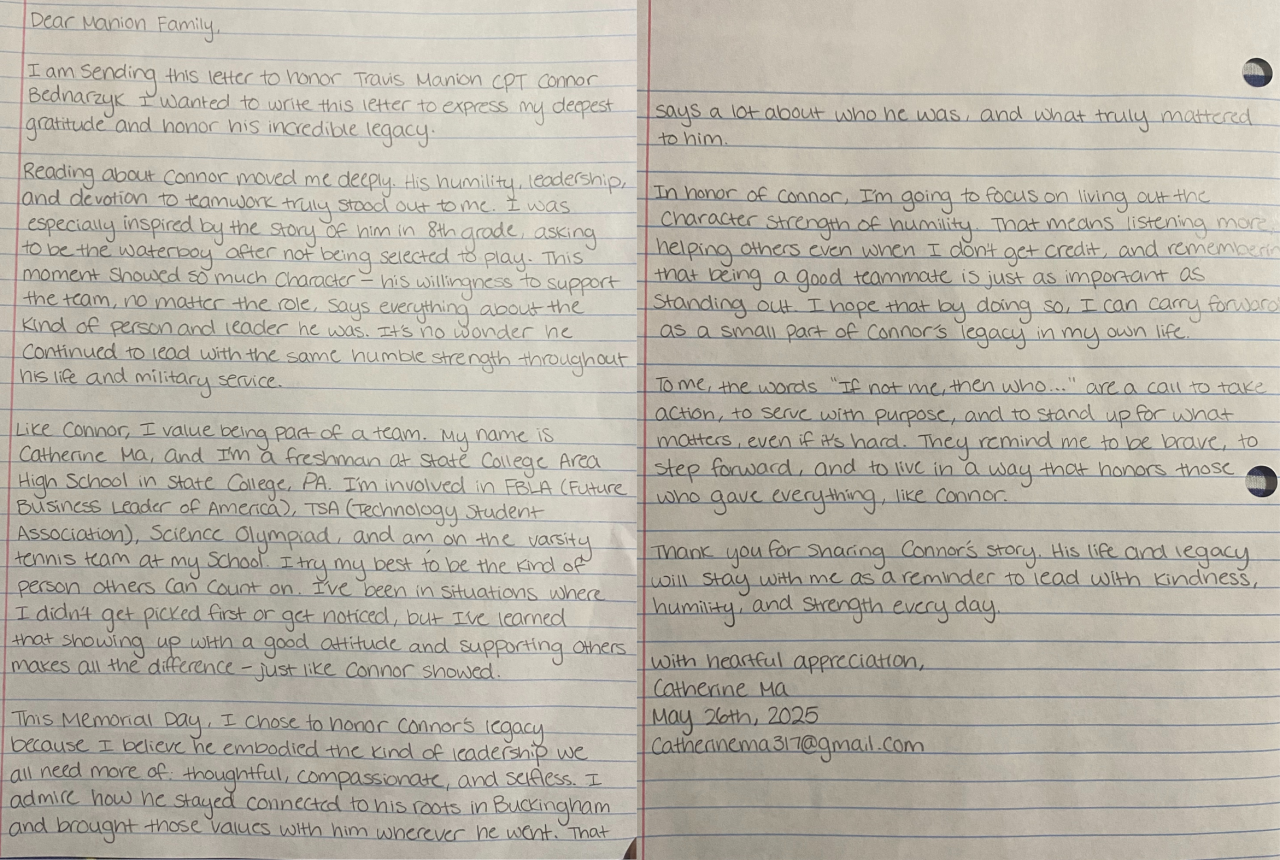 Dear Manion Family,
I am sending this letter to honor Travis Manion CPT Connor
Bednarzyk I wanted to write this letter to express my deepest
gratitude and honor his incredible legacy.
Reading about Connor moved me deeply. His humility, leadership,
and devotion to teamwork truly stood out to me. I was
especially inspired by the story of him in 8th grade, asking
to be the waterboy after not being selected to play. This
moment showed so much character – his willingness to support
the team, no matter the role, says everything about the
kind of person and leader he was. It's no wonder he
continued to lead with the same humble strength throughout
his life and military service.
Like Connor, I value being part of a team. My name is
Catherine Ma, and I'm a freshman at State College Area
High School in State College, PA. I'm involved in FBLA (Future
Business Leader of America), TSA (Technology Student
Association), Science Olympiad, and am on the varsity
tennis team at my School. I try my best to be the kind of
person others can count on. I've been in situations where
I didn't get picked first or get noticed, but I've learned
that showing up with a good attitude and supporting others
makes all the difference – just like Connor showed.
This Memorial Day, I chose to honor Connor's legacy
because I believe he embodied the kind of leadership we
all need more of: thoughtful, compassionate, and selfless. I
admire how he stayed connected to his roots in Buckingham
and brought those values with him wherever he went. That
says a lot about who he was, and what truly mattered
to him.
In honor of Connor, I'm going to focus on living out the
character strength of humility. That means listening more,
helping others even when I don't get credit, and rememberin
that being a good teammate is just as important as
standing out. I hope that by doing so, I can carry forward
as a small part of Connor's legacy in my own life.
To me, the words "If not me, then who..." are a call to take
action, to serve with purpose, and to stand up for what
matters, even if it's hard. They remind me to be brave, to
step forward, and to live in a way that honors those
who gave everything, like Connor.
Thank you for sharing Connor's story. His life and legacy
will stay with me as a reminder to lead with kindness,
humility, and strength every day.
With heartful appreciation,
Catherine Ma
May 26th, 2025
catherinema317@gmail.com